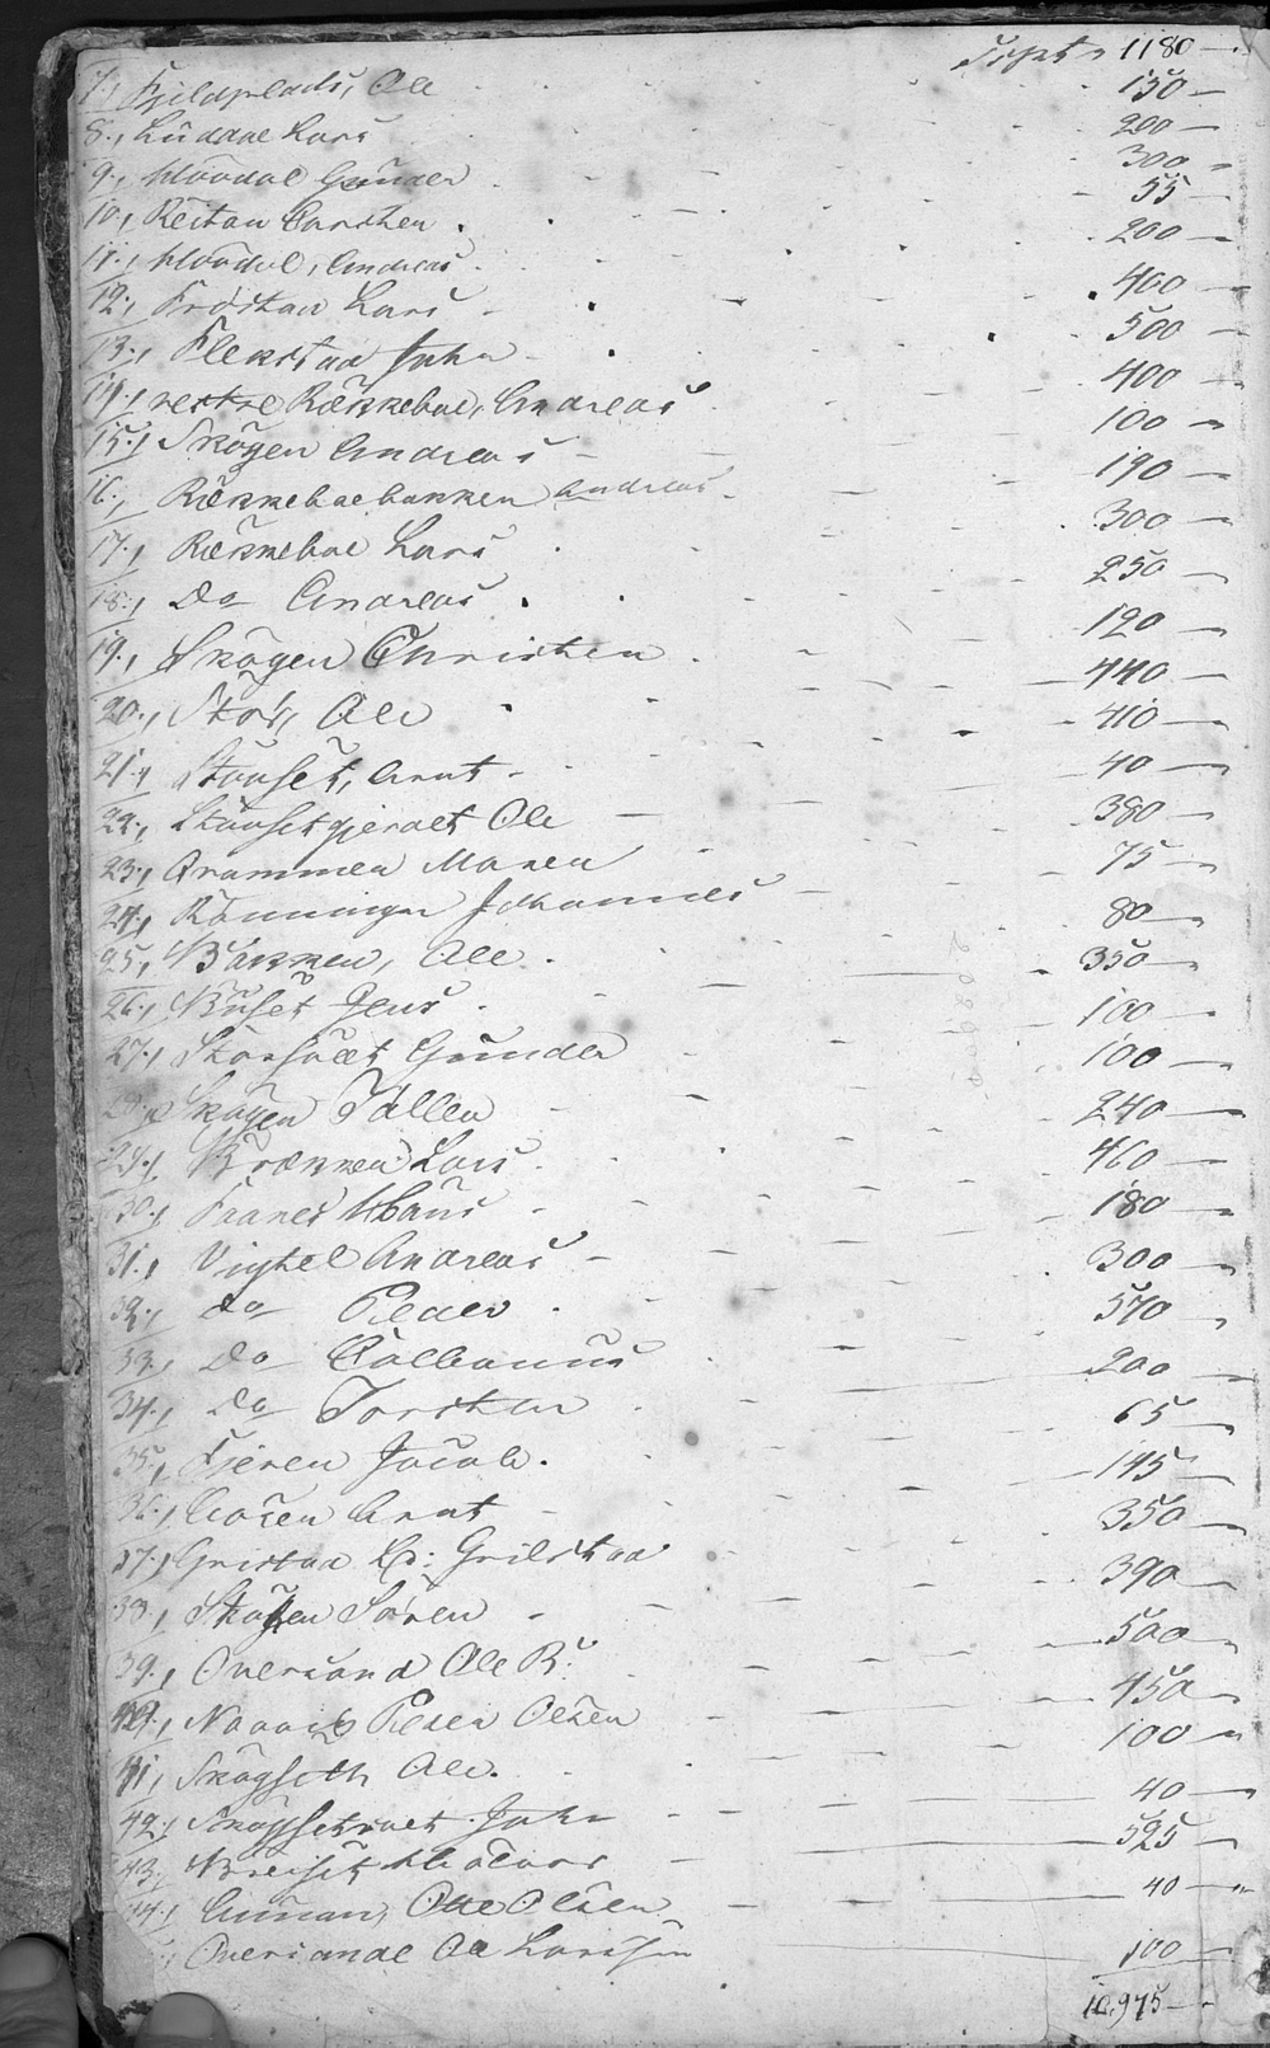 Trspt. 1180 —
7., Fjeldplads, Ole 150 —
8., Lüddal Lars 200 —
9., Moodal Gunder 300 „
10., Reitan Carsten 55 —
11., Moodal, Andreas 200 —
12., Fröstan Lars 400 —
13., Flekstad John 500 —
14., vestre Rækkeboe, Andreas 400 —
15., Skogen Andreas 100 —
16., Rækkeboebakken Andreas 190 —
17., Rækkeboe Lars 300 —
18., Do Andreas 250 —
19., Skogen Christen 120 —
20., Stor, Ole 440 —
21., Stouset, Arnt 410 —
22., Stousetgjerdet Ole 40 —
23., Grammen Maren 380 —
24., Rönningen Johannes 75 —
25., Bakken, Ole 80 —
26., Büset Jens 350 —
27., Gunder 100 —
28., Skogen Tollen 100 —
29., Brækken Lars 240 —
30., Faanes Hans 460 —
31., Vigtel Andreas 180 —
32., do Peder 300 —
33., Do Colbanus 570 —
34., Do Torsten 200 —
35., Fjeren Jacob 65 —
36., Aasen Arnt 145 —
37., Gristad Ls: Grilstad 350 —
38., Skogen Sören 390 —
39., Oversand Ole B: 500 —
40., Peder Olsen 450 —
41, Skogseth Ole 100 —
42., Skogsetvalt John 40 —
43., Breiset 525 —
44., Aunan, Otte Olsen 40 —
Oversande Ole Larssen 100 —
10,975 —